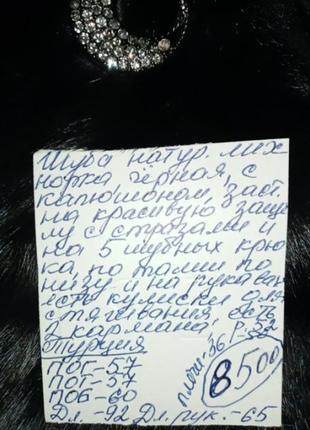 Шуба натур. мих
норка чёрная, с
капюшоном, заст.
на красивую заще
лку с стразами и
на 5 шубных крю
ка, по талии по
низу и на рукавах
есть кулиски для
стягивания, есть
2 кармана, Р-52
Турция плечи-36
ПОГ-57 8500
ПОТ-57
ПОБ-60
Дл.-92 Дл. рук.-65